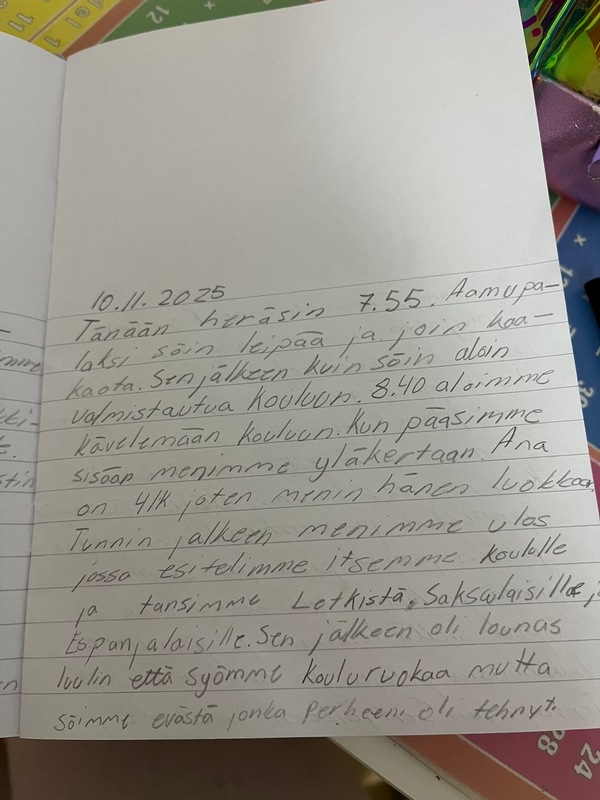 10.11.2025
Tänään heräsin 7.55. Aamupa-
laksi söin leipää ja join kaa-
kaota. Sen jälkeen kuin söin aloin
valmistautua kouluun. 8.40 aloimme
kävelemään kouluun. Kun pääsimme
sisään menimme yläkertaan. Ana
on 4lk joten menin hänen luokkaan.
Tunnin jälkeen menimme ulos
jossa esitelimme itsemme koululle
ja tansimme Letkistä, Saksalaisille j
Espanjalaisille. Sen jälkeen oli lounas
luulin että syömme kouluruokaa mutta
söimme evästä jonka perheeni oli tehnyt.